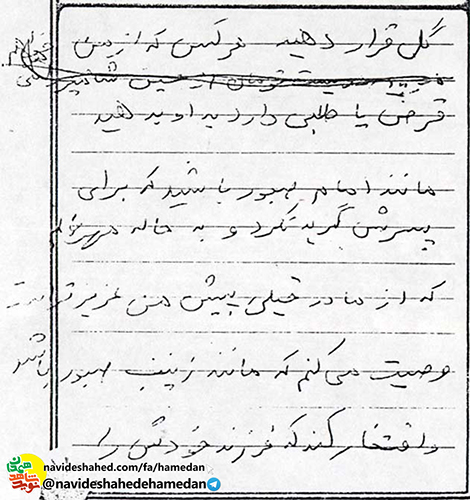 گل قرار دهید هرکس که از من
قرض یا طلبی دارد به او بدهید
مانند امام صبور باشید که برای
پسرش گریه نکرد و به خاله
که از مادر خیلی پیش من عزیزتر است
وصیت می‌کنم که مانند زینب صبور باشد
و افتخار کند که فرزند خودش را
navideshahed.com/fa/hamedan
@navideshahedehamedan